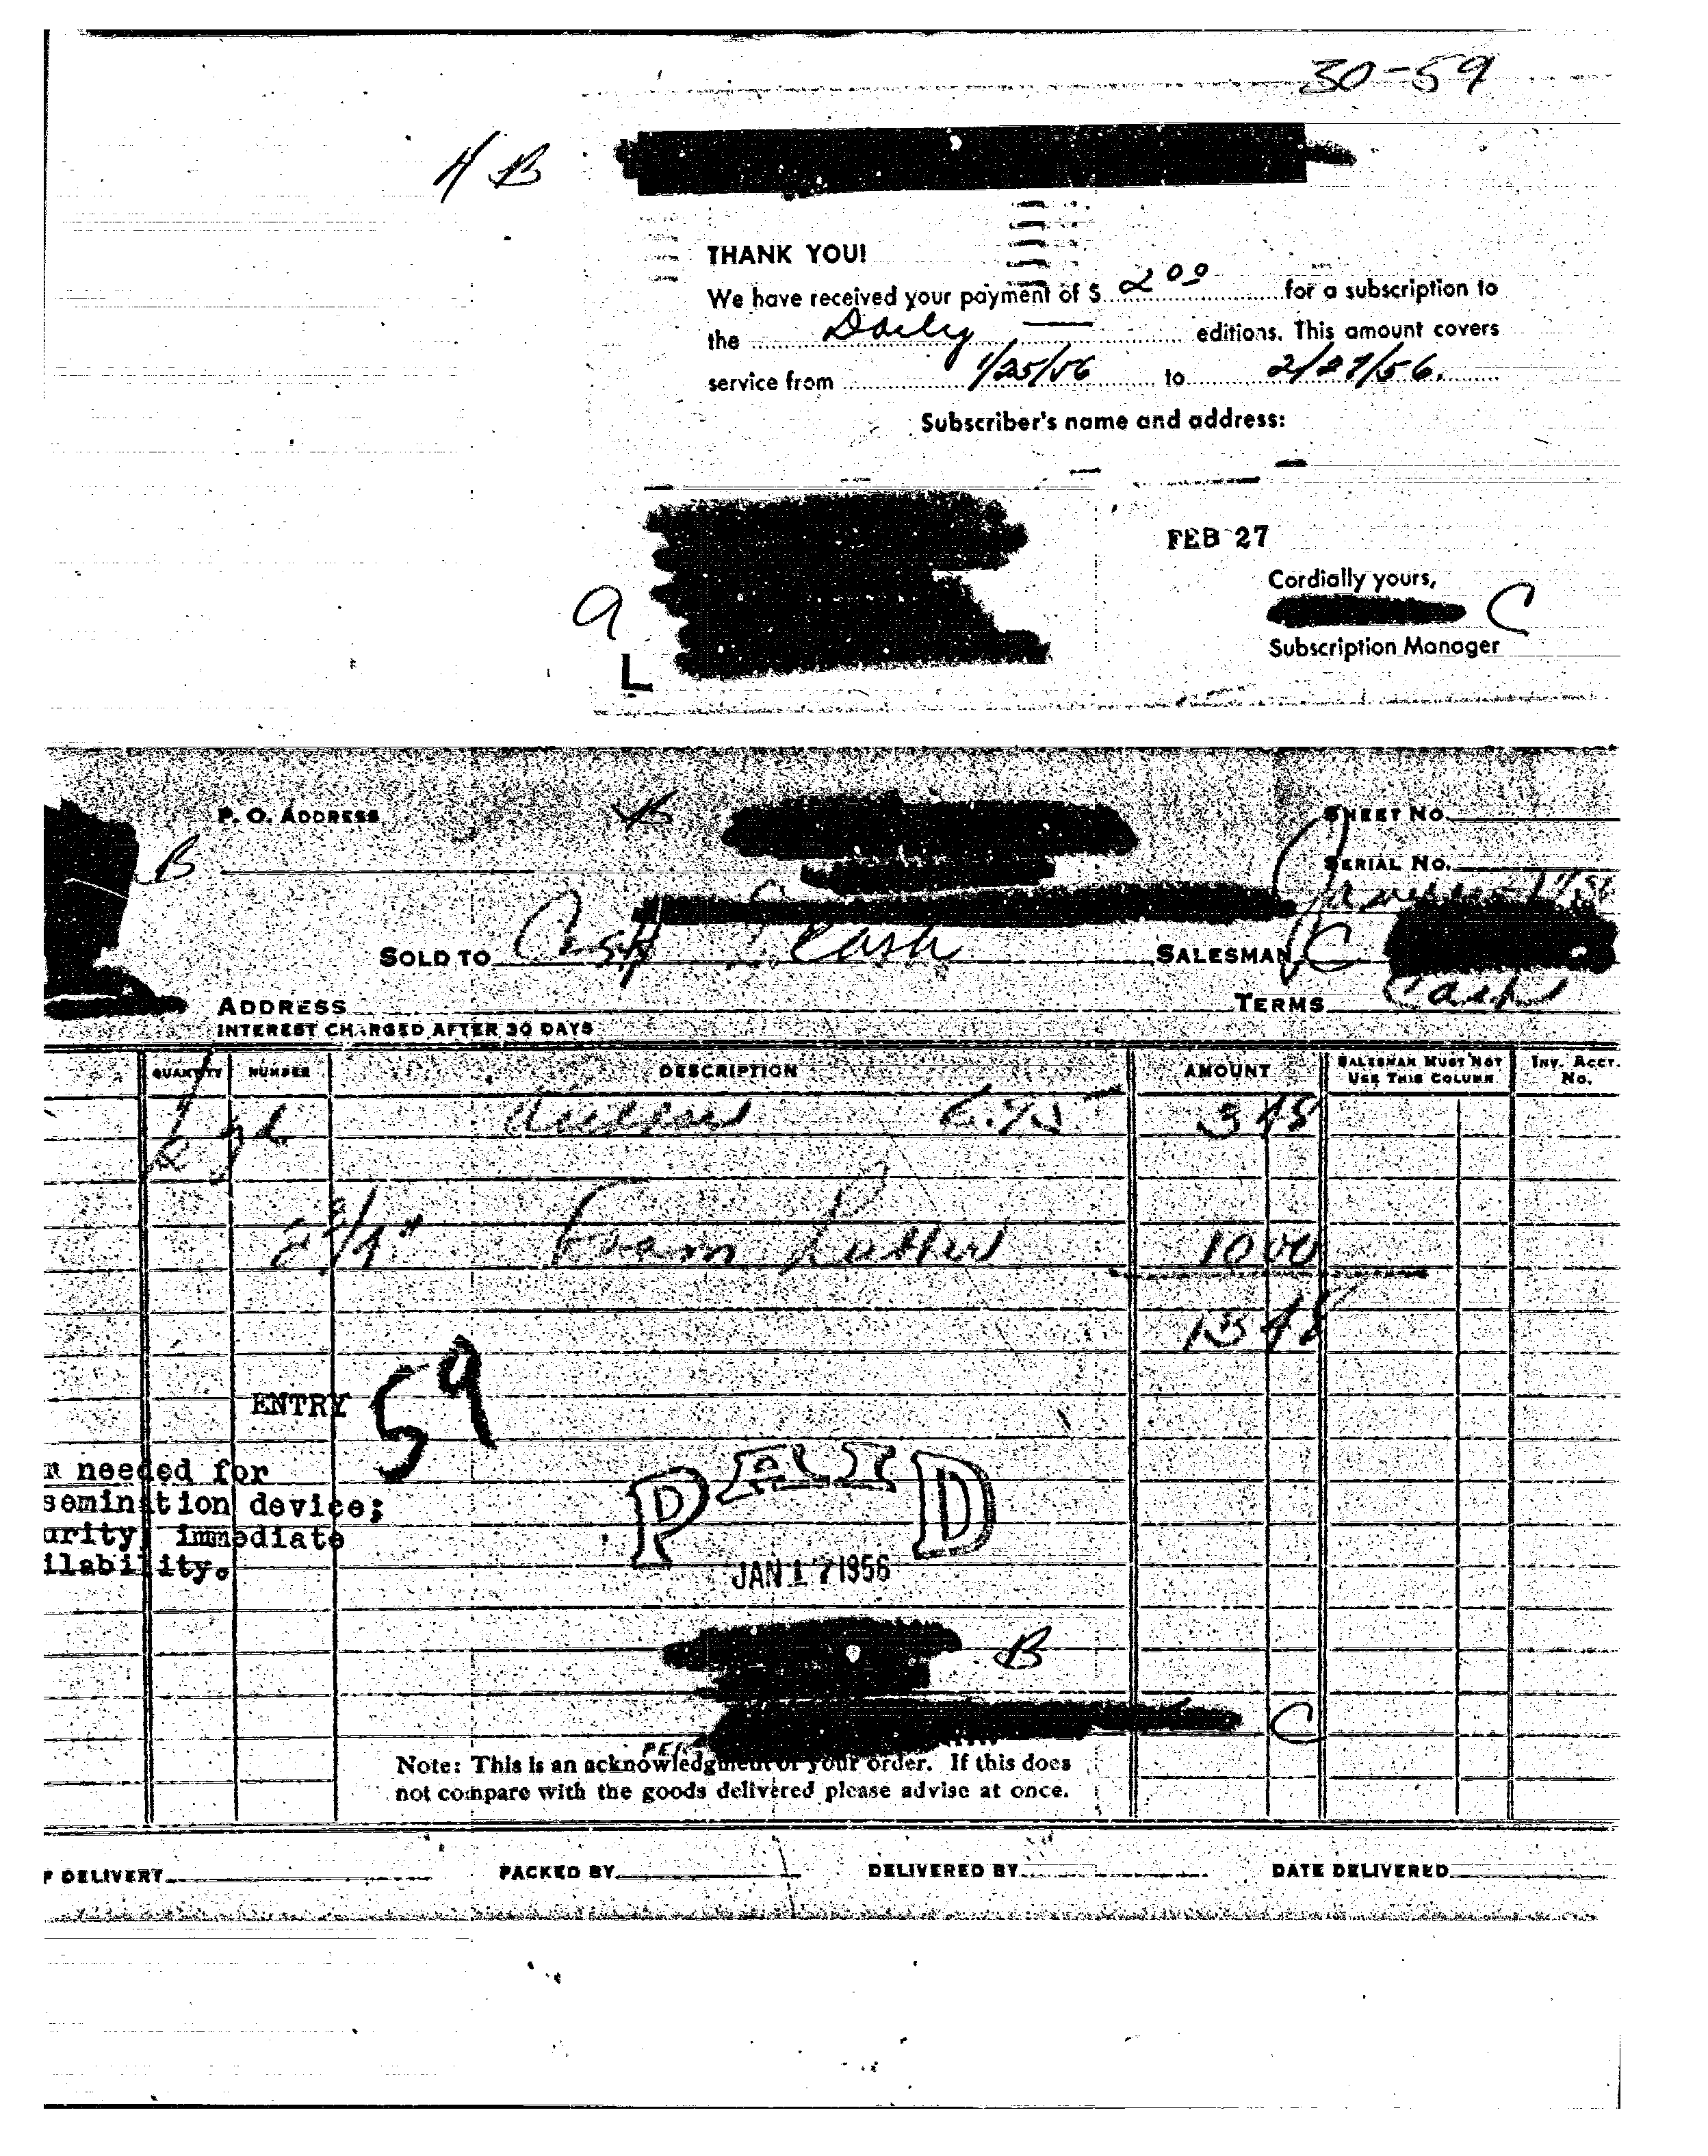 30-59
A B
THANK YOU!
We have received your payment of $ 2 00 for a subscription to
the Daily editions. This amount covers
service from 1/25/56 to 2/27/56.
Subscriber's name and address:
FEB 27
Cordially yours,
C
Subscription Manager
a
L
P. O. ADDRESS
SHEET NO.
B
SERIAL NO.
SOLD TO Cash Cash SALESMAN C
ADDRESS TERMS Cash
INTEREST CHARGED AFTER 30 DAYS
QUANTITY NUMBER DESCRIPTION AMOUNT SALESMAN MUST NOT USE THIS COLUMN INV. ACCT. No.
3 48
2 3/4" Foam Rubber 10 00
13 48
ENTRY 59
n needed for
semination device;
urity, immediate
ilability.
PAID
JAN 17 1956
B
C
PER
Note: This is an acknowledgment of your order. If this does
not compare with the goods delivered please advise at once.
F DELIVERY PACKED BY DELIVERED BY DATE DELIVERED